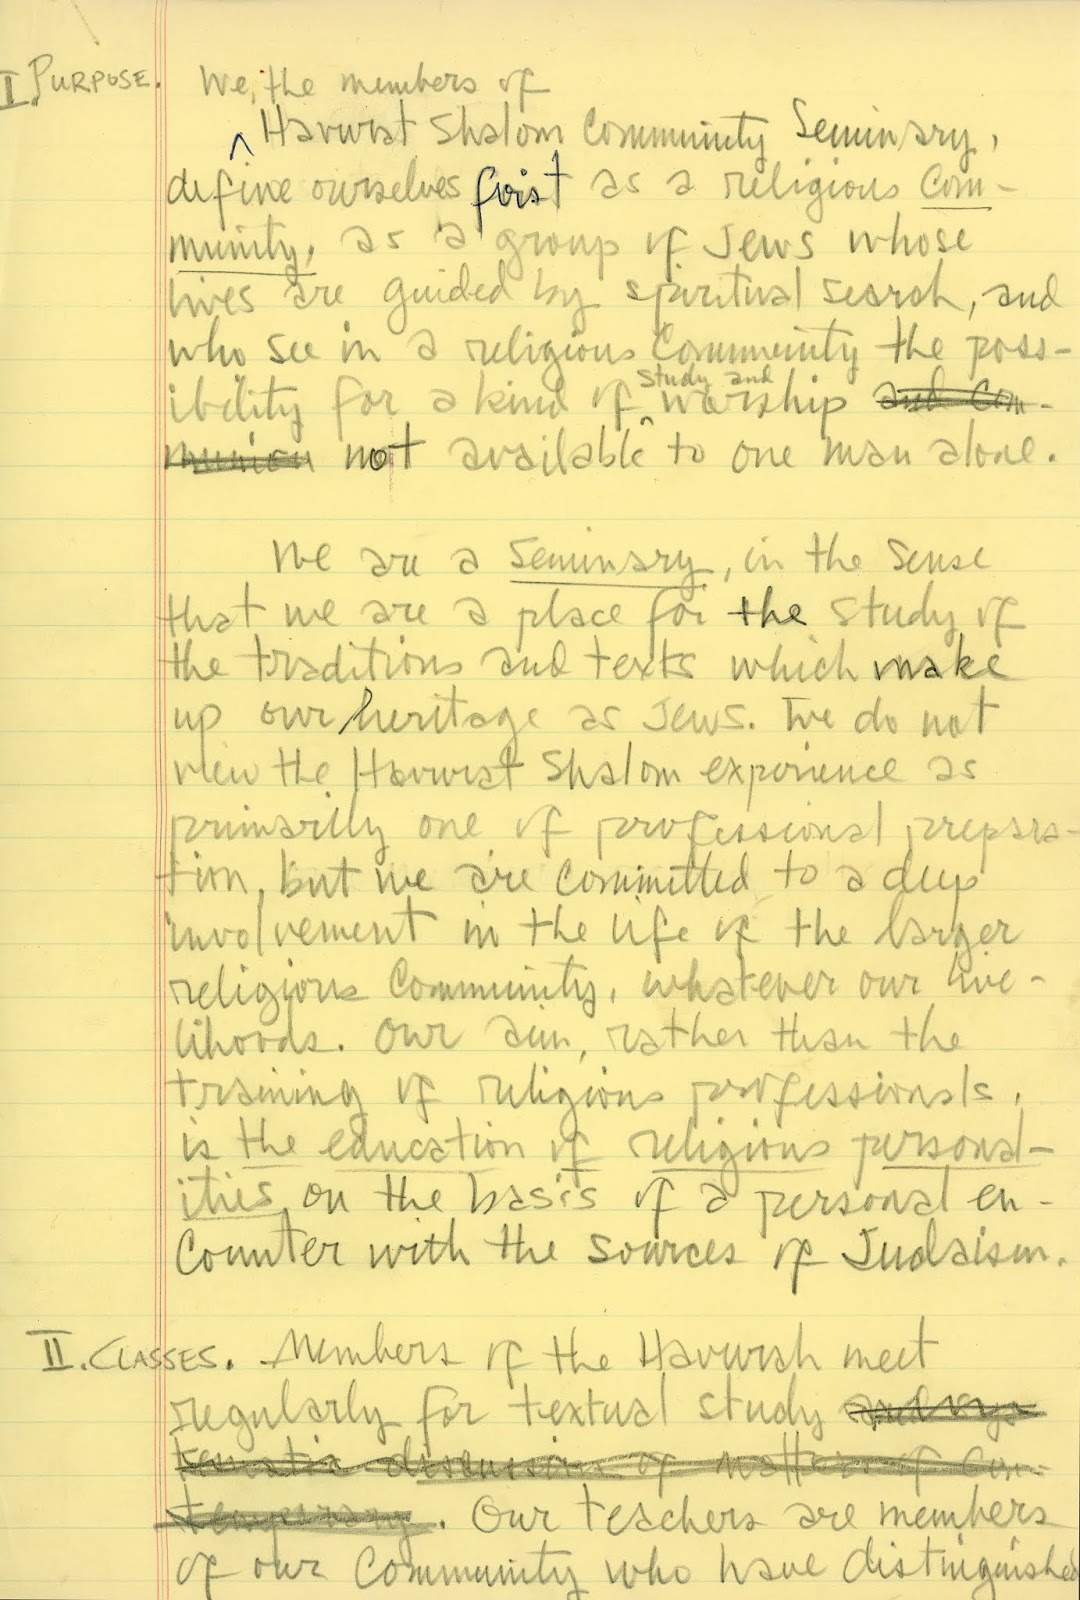 I. PURPOSE. We, the members of
^ Havurat Shalom Community Seminary,
define ourselves first as a religious com-
munity, as a group of Jews whose
lives are guided by spiritual search, and
who see in a religious community the poss-
study and
ibility for a kind of ^ worship and com-
munion not available to one man alone.
We are a seminary, in the sense
that we are a place for the study of
the traditions and texts which make
up our heritage as Jews. We do not
view the Havurat Shalom experience as
primarily one of professional prepara-
tion, but we are committed to a deep
involvement in the life of the larger
religious community, whatever our live-
lihoods. Our aim, rather than the
training of religious professionals,
is the education of religious personal-
ities on the basis of a personal en-
counter with the sources of Judaism.
II. CLASSES. Members of the Havurah meet
regularly for textual study and sys-
tematic discussions of matters of con-
temporary. Our teachers are members
of our community who have distinguished